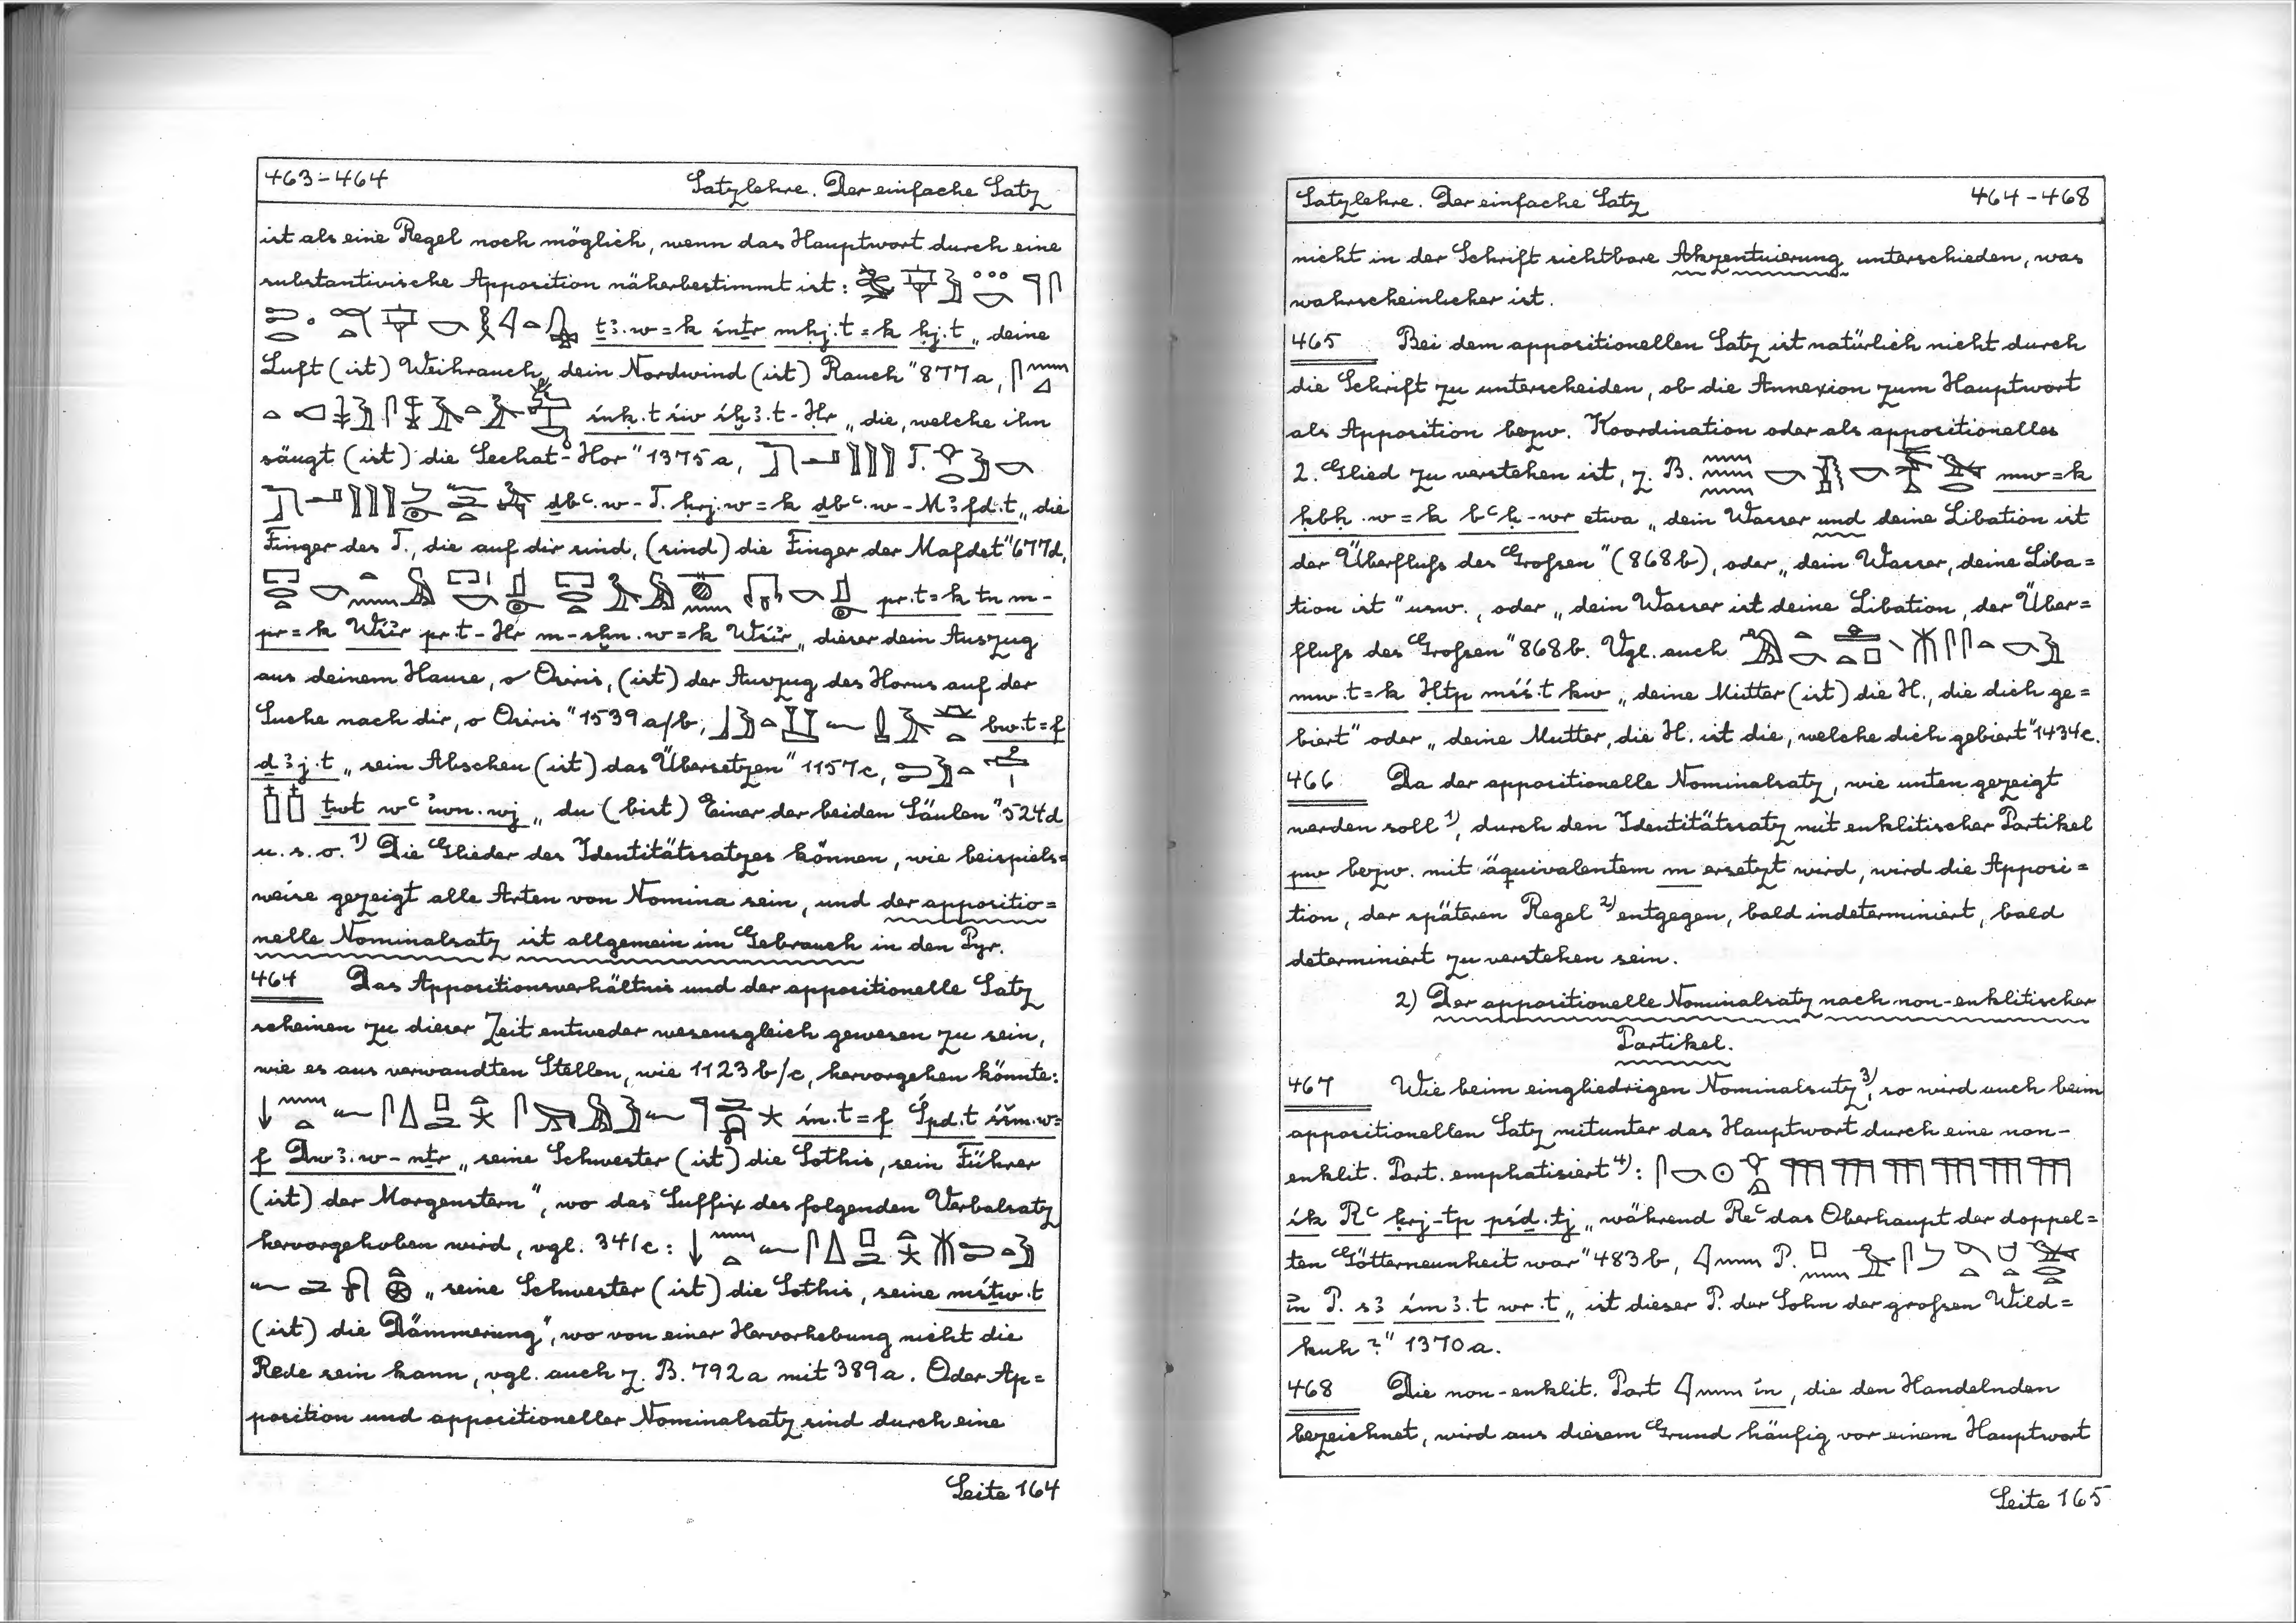 463-464 Satzlehre. Der einfache Satz
ist als eine Regel noch möglich, wenn das Hauptwort durch eine
substantivische Apposition näherbestimmt ist:
ṯꜣ.w=k śnṯr mḥj.t=k ḥj.t „deine
Luft (ist) Weihrauch, dein Nordwind (ist) Rauch" 877a,
„die, welche ihn
säugt (ist) die Sechat-Hor" 1375a,
ḏbꜥ.w-T. ḥrj.w=k ḏbꜥ.w-Mꜣfd.t „die
Finger des T., die auf dir sind, (sind) die Finger der Mafdet" 677d,
pr.t=k tn m-
pr=k Wśir pr.t-Ḥr m-sḫn.w=k Wśir „dieser dein Auszug
aus deinem Hause, o Osiris, (ist) der Auszug des Horus auf der
Suche nach dir, o Osiris" 1539a/b, bw.t=f
ḏꜣj.t „sein Abscheu (ist) das Übersetzen" 1157c,
ṯwt wꜥ iwn.wj „du (bist) Einer der beiden Säulen" 524d
u. s. o. 1) Die Glieder des Identitätssatzes können, wie beispiels=
weise gezeigt alle Arten von Nomina sein, und der appositio=
nelle Nominalsatz ist allgemein im Gebrauch in den Pyr.
464 Das Appositionsverhältnis und der appositionelle Satz
scheinen zu dieser Zeit entweder wesensgleich gewesen zu sein,
wie es aus verwandten Stellen, wie 1123b/c, hervorgehen könnte:
śn.t=f Śpd.t śšm.w=
f Dwꜣ.w-nṯr „seine Schwester (ist) die Sothis, sein Führer
(ist) der Morgenstern", wo das Suffix des folgenden Verbalsatz
hervorgehoben wird, vgl. 341c:
„seine Schwester (ist) die Sothis, seine mśṯw.t
(ist) die Dämmerung", wo von einer Hervorhebung nicht die
Rede sein kann, vgl. auch z. B. 792a mit 389a. Oder Ap=
position und appositioneller Nominalsatz sind durch eine
Seite 164
Satzlehre. Der einfache Satz 464-468
nicht in der Schrift sichtbare Akzentuierung unterschieden, was
wahrscheinlicher ist.
465 Bei dem appositionellen Satz ist natürlich nicht durch
die Schrift zu unterscheiden, ob die Annexion zum Hauptwort
als Apposition bezw. Koordination oder als appositionelles
2. Glied zu verstehen ist, z. B. mw=k
ḳbḥ.w=k bꜥḥ-wr etwa „dein Wasser und deine Libation ist
der Überfluſs des Groſsen" (868b), oder „dein Wasser, deine Liba=
tion ist" usw., oder „dein Wasser ist deine Libation, der Über=
fluſs des Groſsen" 868b. Vgl. auch
mw.t=k Ḥtp mśś.t kw „deine Mutter (ist) die H., die dich ge=
biert" oder „deine Mutter, die H. ist die, welche dich gebiert" 1434c.
466 Da der appositionelle Nominalsatz, wie unten gezeigt
werden soll 1), durch den Identitätssatz mit enklitischer Partikel
pw bezw. mit äquivalentem m ersetzt wird, wird die Apposi=
tion, der späteren Regel 2) entgegen, bald indeterminiert, bald
determiniert zu verstehen sein.
2) Der appositionelle Nominalsatz nach non-enklitischer
Partikel.
467 Wie beim eingliedrigen Nominalsatz 3), so wird auch beim
appositionellen Satz mitunter das Hauptwort durch eine non-
enklit. Part. emphatisiert 4):
śk Rꜥ ḥrj-tp pśḏ.tj „während Reꜥ das Oberhaupt der doppel=
ten Götterneunheit war" 483b, P.
in P. sꜣ śmꜣ.t wr.t „ist dieser P. der Sohn der groſsen Wild=
kuh?" 1370a.
468 Die non-enklit. Part in, die den Handelnden
bezeichnet, wird aus diesem Grund häufig vor einem Hauptwort
Seite 165